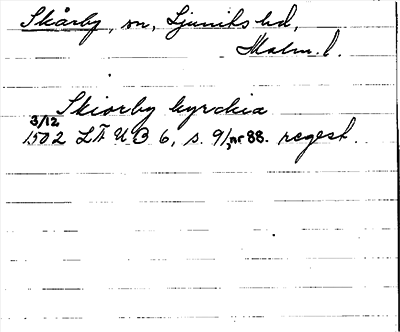 Skårby, sn, Ljunits hd,
Malm. l.
Skiorby kyrckia
3/12
1502 LÅUB 6, s. 91, nr 88. regest.